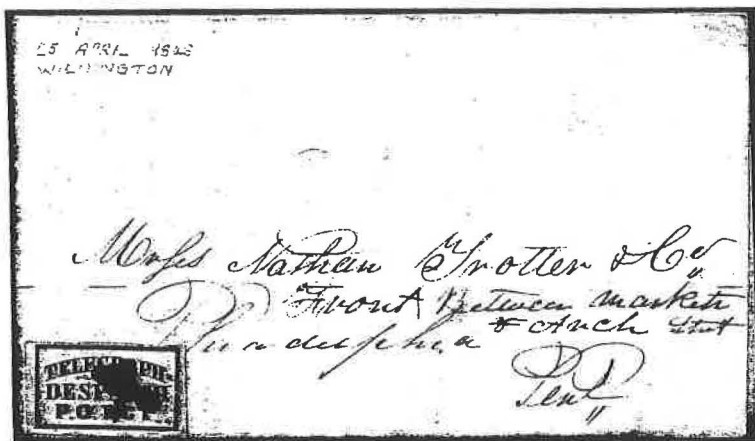 25 APRIL
WILMINGTON
Messrs Nathan Trotter & Co
Front Between Market
& Arch Street
Philadelphia
Penn
TELEGRAPH
P.O.